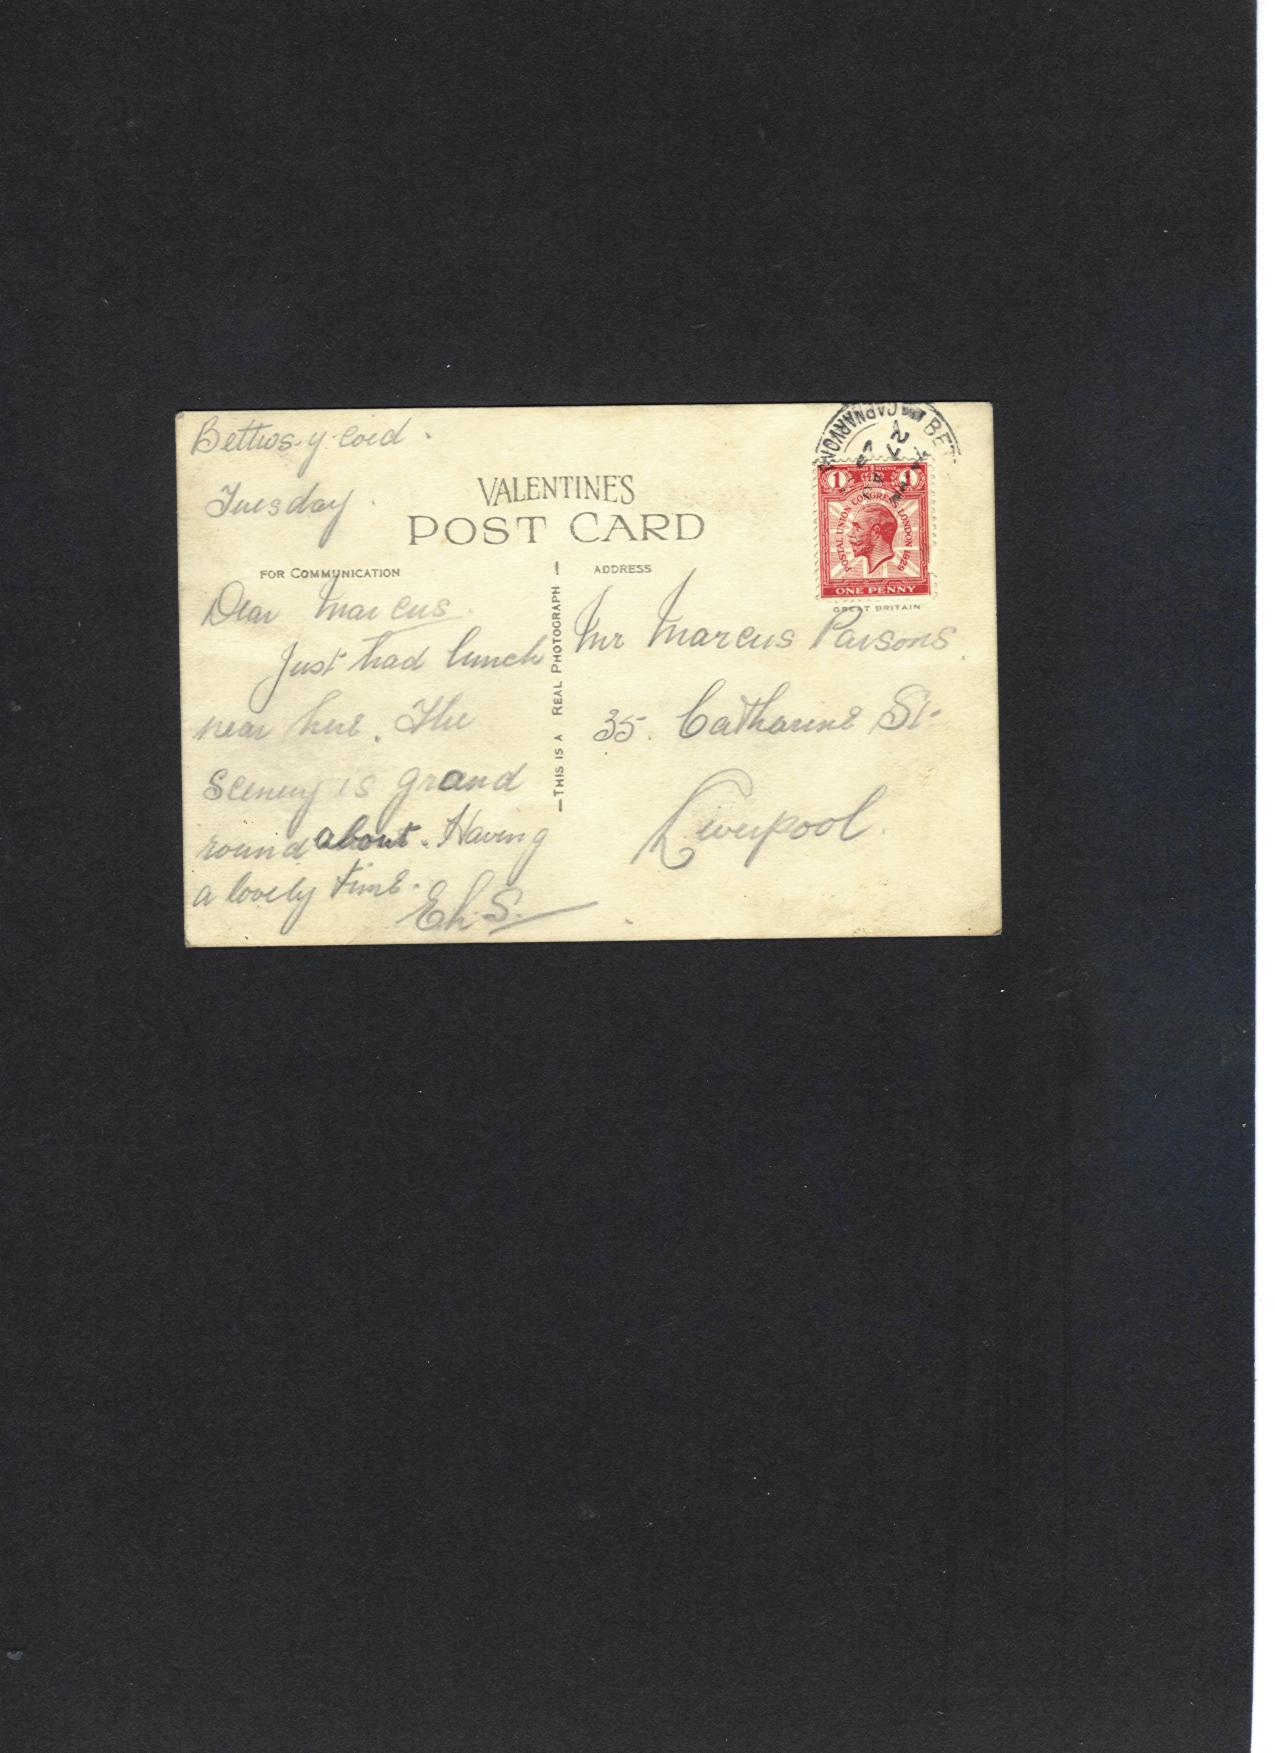 Bettws-y-coed.
Tuesday.
VALENTINE'S
POST CARD
FOR COMMUNICATION
Dear Marcus.
Just had lunch
near here. The
scenery is grand
round about. Having
a lovely time.
E.h.S.
THIS IS A REAL PHOTOGRAPH
ADDRESS
Mr Marcus Parsons
35. Catharine St-
Liverpool.
CARNARVON
BET
1 POSTAGE REVENUE 1
POSTAL UNION CONGRESS LONDON 1929
ONE PENNY
GREAT BRITAIN